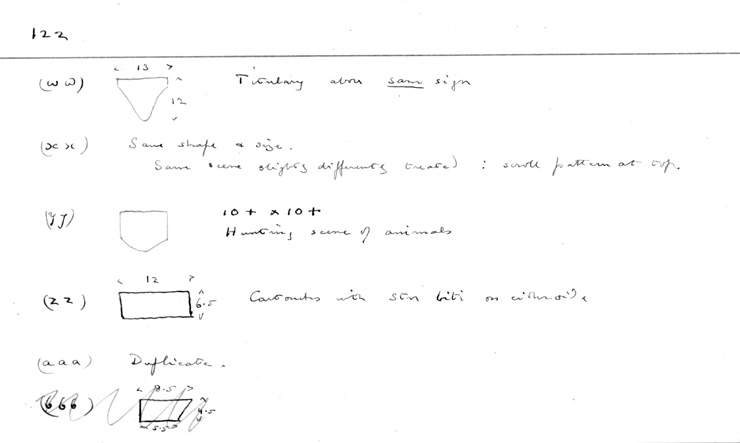 122
(ww) 13 12 Titulary above sam sign
(xx) Same shape & size.
Same scene slightly differently treated : scroll pattern at top.
(yy) 10+ x 10+
Hunting scene of animals
(zz) 12 6.5 Cartouches with on either side
(aaa) Duplicate.
(bbb) 8.5 4.5 5.5